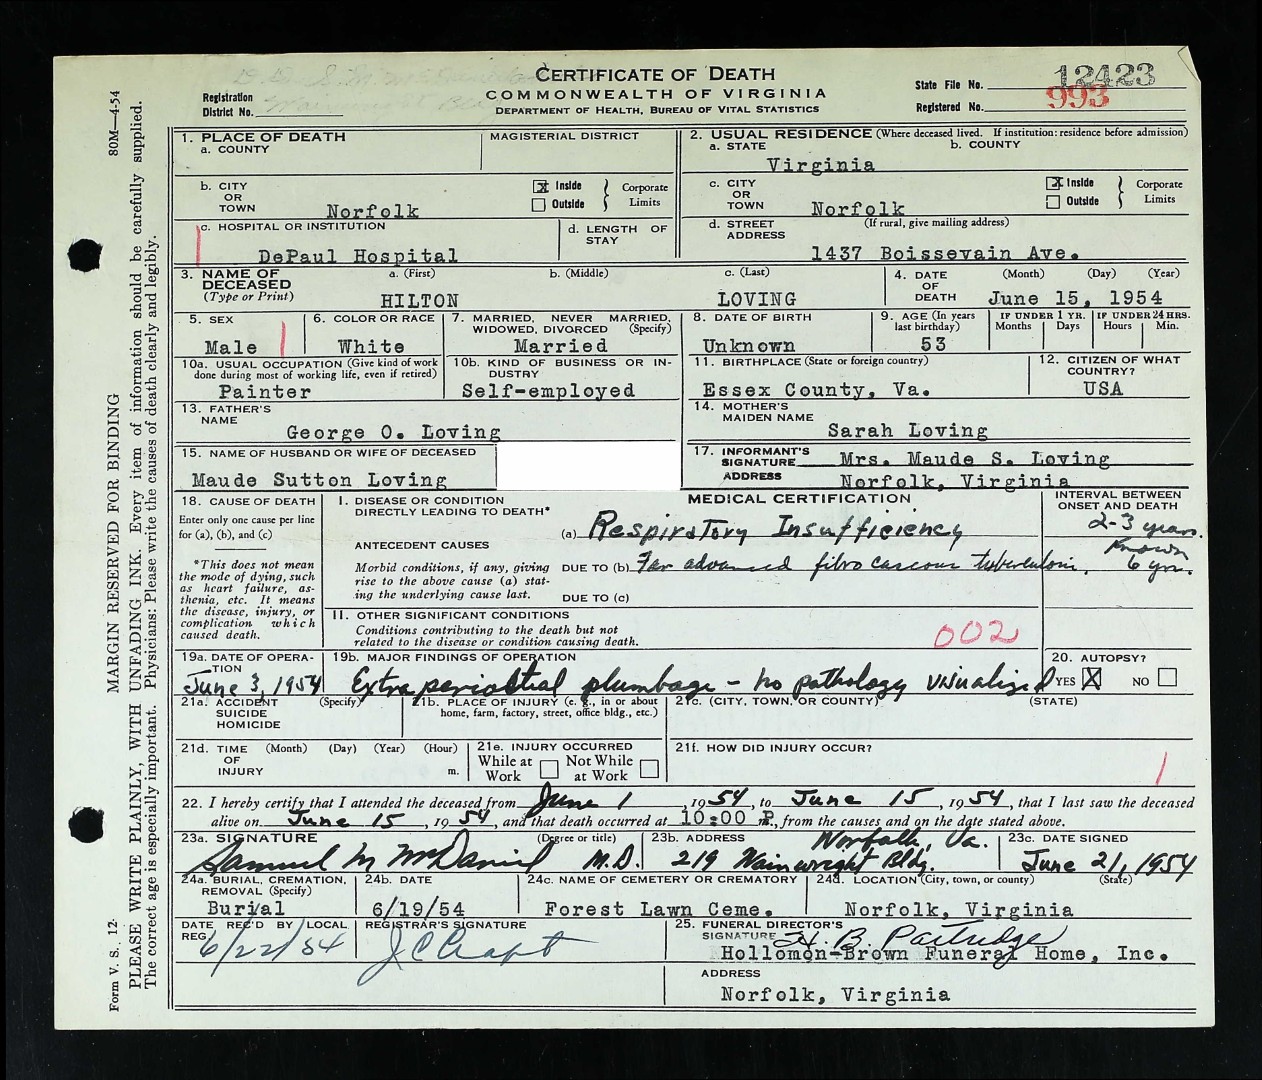 CERTIFICATE OF DEATH
COMMONWEALTH OF VIRGINIA
DEPARTMENT OF HEALTH, BUREAU OF VITAL STATISTICS
Registration
District No.
State File No. 12423
Registered No. 993
80M—4-54
MARGIN RESERVED FOR BINDING
PLEASE WRITE PLAINLY, WITH UNFADING INK. Every item of information should be carefully supplied.
The correct age is especially important. Physicians: Please write the causes of death clearly and legibly.
Form V. S. 12
1. PLACE OF DEATH
a. COUNTY
MAGISTERIAL DISTRICT
2. USUAL RESIDENCE (Where deceased lived. If institution: residence before admission)
a. STATE
b. COUNTY
Virginia
b. CITY OR TOWN
Norfolk
☒ Inside
☐ Outside
Corporate Limits
c. CITY OR TOWN
Norfolk
☒ Inside
☐ Outside
Corporate Limits
c. HOSPITAL OR INSTITUTION
DePaul Hospital
d. LENGTH OF STAY
d. STREET ADDRESS
(If rural, give mailing address)
1437 Boissevain Ave.
3. NAME OF DECEASED
(Type or Print)
a. (First)
b. (Middle)
c. (Last)
HILTON LOVING
4. DATE OF DEATH
(Month) (Day) (Year)
June 15, 1954
5. SEX
Male
6. COLOR OR RACE
White
7. MARRIED, NEVER MARRIED, WIDOWED, DIVORCED (Specify)
Married
8. DATE OF BIRTH
Unknown
9. AGE (In years last birthday)
53
IF UNDER 1 YR.
Months Days
IF UNDER 24 HRS.
Hours Min.
10a. USUAL OCCUPATION (Give kind of work done during most of working life, even if retired)
Painter
10b. KIND OF BUSINESS OR INDUSTRY
Self-employed
11. BIRTHPLACE (State or foreign country)
Essex County, Va.
12. CITIZEN OF WHAT COUNTRY?
USA
13. FATHER'S NAME
George O. Loving
14. MOTHER'S MAIDEN NAME
Sarah Loving
15. NAME OF HUSBAND OR WIFE OF DECEASED
Maude Sutton Loving
17. INFORMANT'S SIGNATURE Mrs. Maude S. Loving
ADDRESS Norfolk, Virginia
18. CAUSE OF DEATH
Enter only one cause per line for (a), (b), and (c)
*This does not mean the mode of dying, such as heart failure, asthenia, etc. It means the disease, injury, or complication which caused death.
MEDICAL CERTIFICATION
INTERVAL BETWEEN ONSET AND DEATH
I. DISEASE OR CONDITION DIRECTLY LEADING TO DEATH*
(a) Respiratory Insufficiency
2-3 years.
ANTECEDENT CAUSES
Morbid conditions, if any, giving rise to the above cause (a) stating the underlying cause last.
DUE TO (b) Far advanced fibro caseous tuberculosis.
Known 6 yrs.
DUE TO (c)
II. OTHER SIGNIFICANT CONDITIONS
Conditions contributing to the death but not related to the disease or condition causing death.
002
19a. DATE OF OPERATION
June 3, 1954
19b. MAJOR FINDINGS OF OPERATION
Extraperiosteal plumbage - no pathology visualized
20. AUTOPSY?
YES ☒ NO ☐
21a. ACCIDENT SUICIDE HOMICIDE (Specify)
21b. PLACE OF INJURY (e. g., in or about home, farm, factory, street, office bldg., etc.)
21c. (CITY, TOWN, OR COUNTY) (STATE)
21d. TIME OF INJURY
(Month) (Day) (Year) (Hour)
m.
21e. INJURY OCCURRED
While at Work ☐ Not While at Work ☐
21f. HOW DID INJURY OCCUR?
22. I hereby certify that I attended the deceased from June 1, 1954, to June 15, 1954, that I last saw the deceased
alive on June 15, 1954, and that death occurred at 10:00 P.m., from the causes and on the date stated above.
23a. SIGNATURE (Degree or title)
Samuel M McDaniel M.D.
23b. ADDRESS
Norfolk, Va.
219 Wainwright Bldg.
23c. DATE SIGNED
June 21, 1954
24a. BURIAL, CREMATION, REMOVAL (Specify)
Burial
24b. DATE
6/19/54
24c. NAME OF CEMETERY OR CREMATORY
Forest Lawn Ceme.
24d. LOCATION (City, town, or county) (State)
Norfolk, Virginia
DATE REC'D BY LOCAL REG.
6/22/54
REGISTRAR'S SIGNATURE
25. FUNERAL DIRECTOR'S SIGNATURE H. B. Partridge
Hollomon-Brown Funeral Home, Inc.
ADDRESS
Norfolk, Virginia